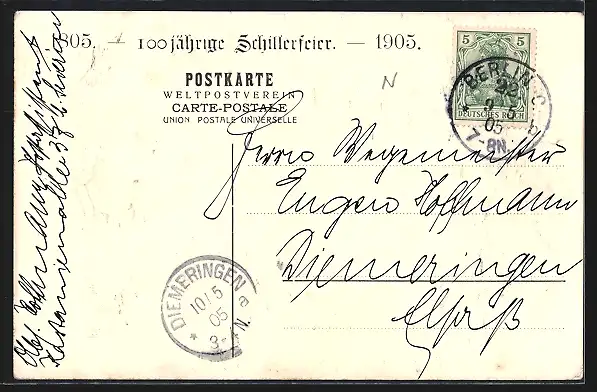 805. — 100jährige Schillerfeier. — 1905.
POSTKARTE
WELTPOSTVEREIN
CARTE-POSTALE
UNION POSTALE UNIVERSELLE
N
5 5
DEUTSCHES REICH
BERLIN C
22
9 5
05
7-8N.
Herrn Wegemeister
Eugen Hoffmann
Diemeringen
Elsaß
DIEMERINGEN
10/5
05
3- N.
Abs.
Kastanienallee